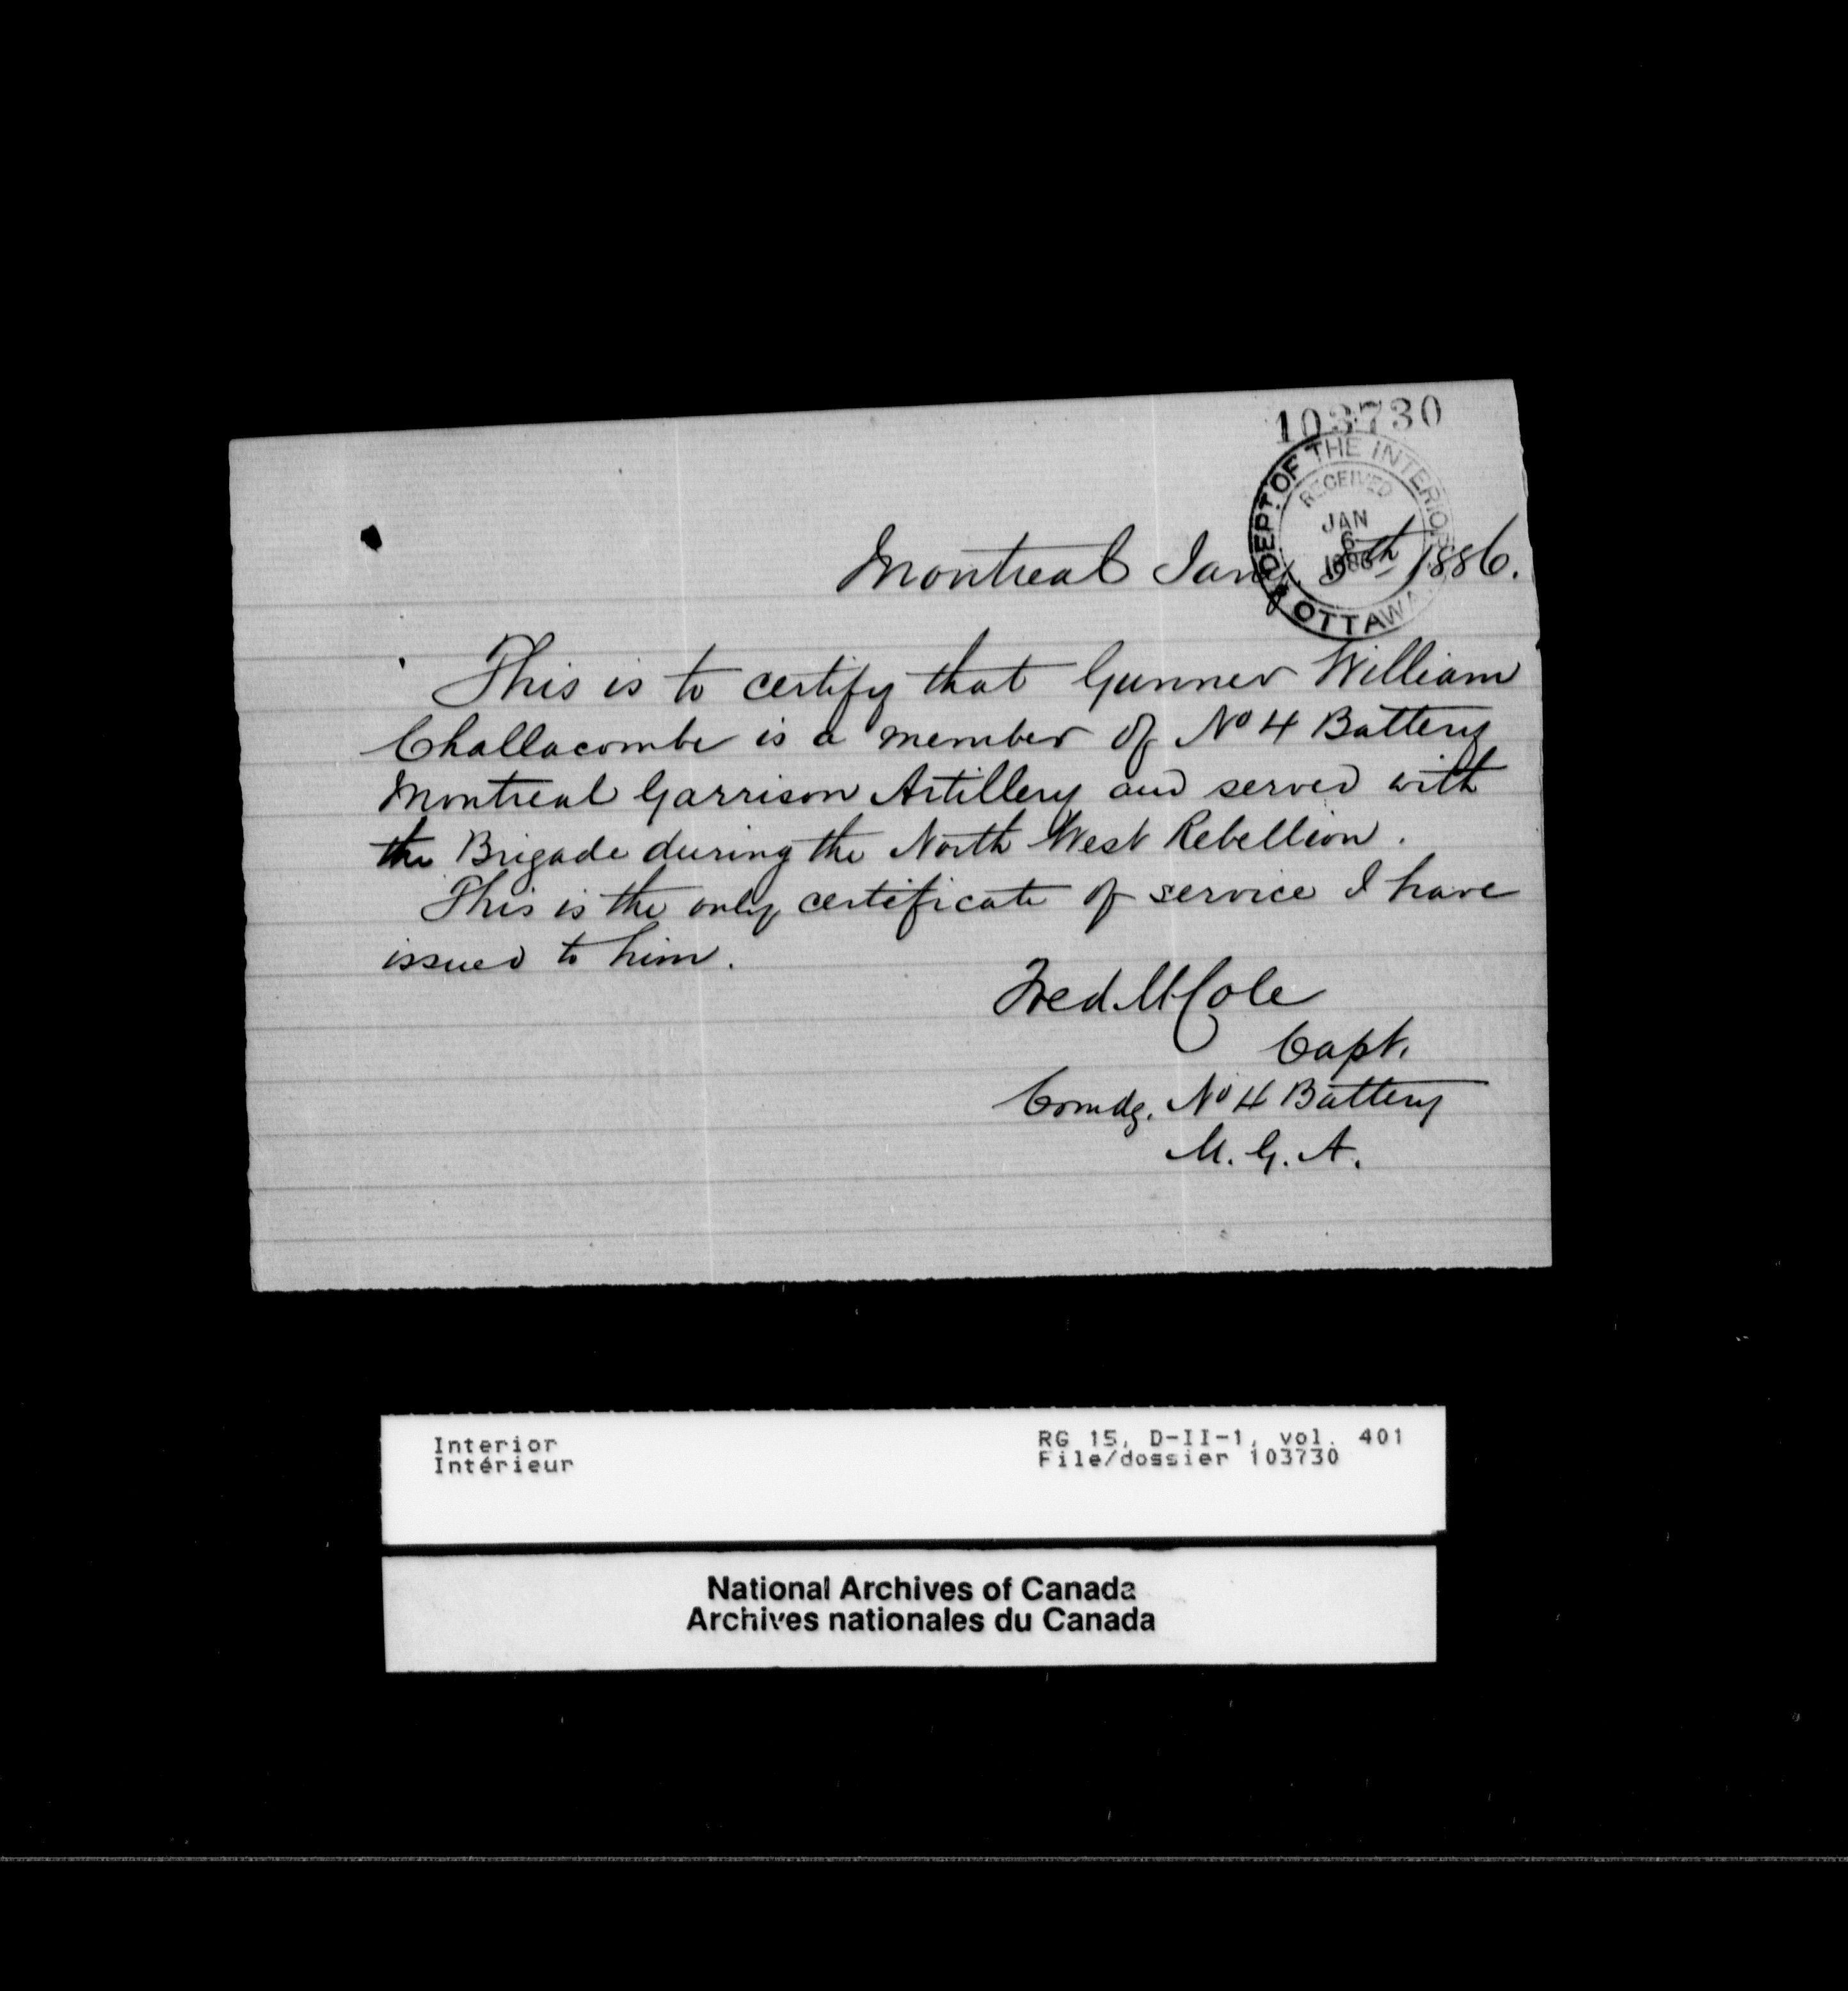 103730
DEPT. OF THE INTERIOR
RECEIVED
JAN
6
1886
OTTAWA
Montreal Jany. 5th 1886.
This is to certify that Gunner William
Challacombe is a member of No 4 Battery
Montreal Garrison Artillery and served with
the Brigade during the North West Rebellion.
This is the only certificate of service I have
issued to him.
Fred. M Cole
Capt.
Comdg. No 4 Battery
M. G. A.
Interior
Intérieur
RG 15, D-II-1, vol. 401
File/dossier 103730
National Archives of Canada
Archives nationales du Canada